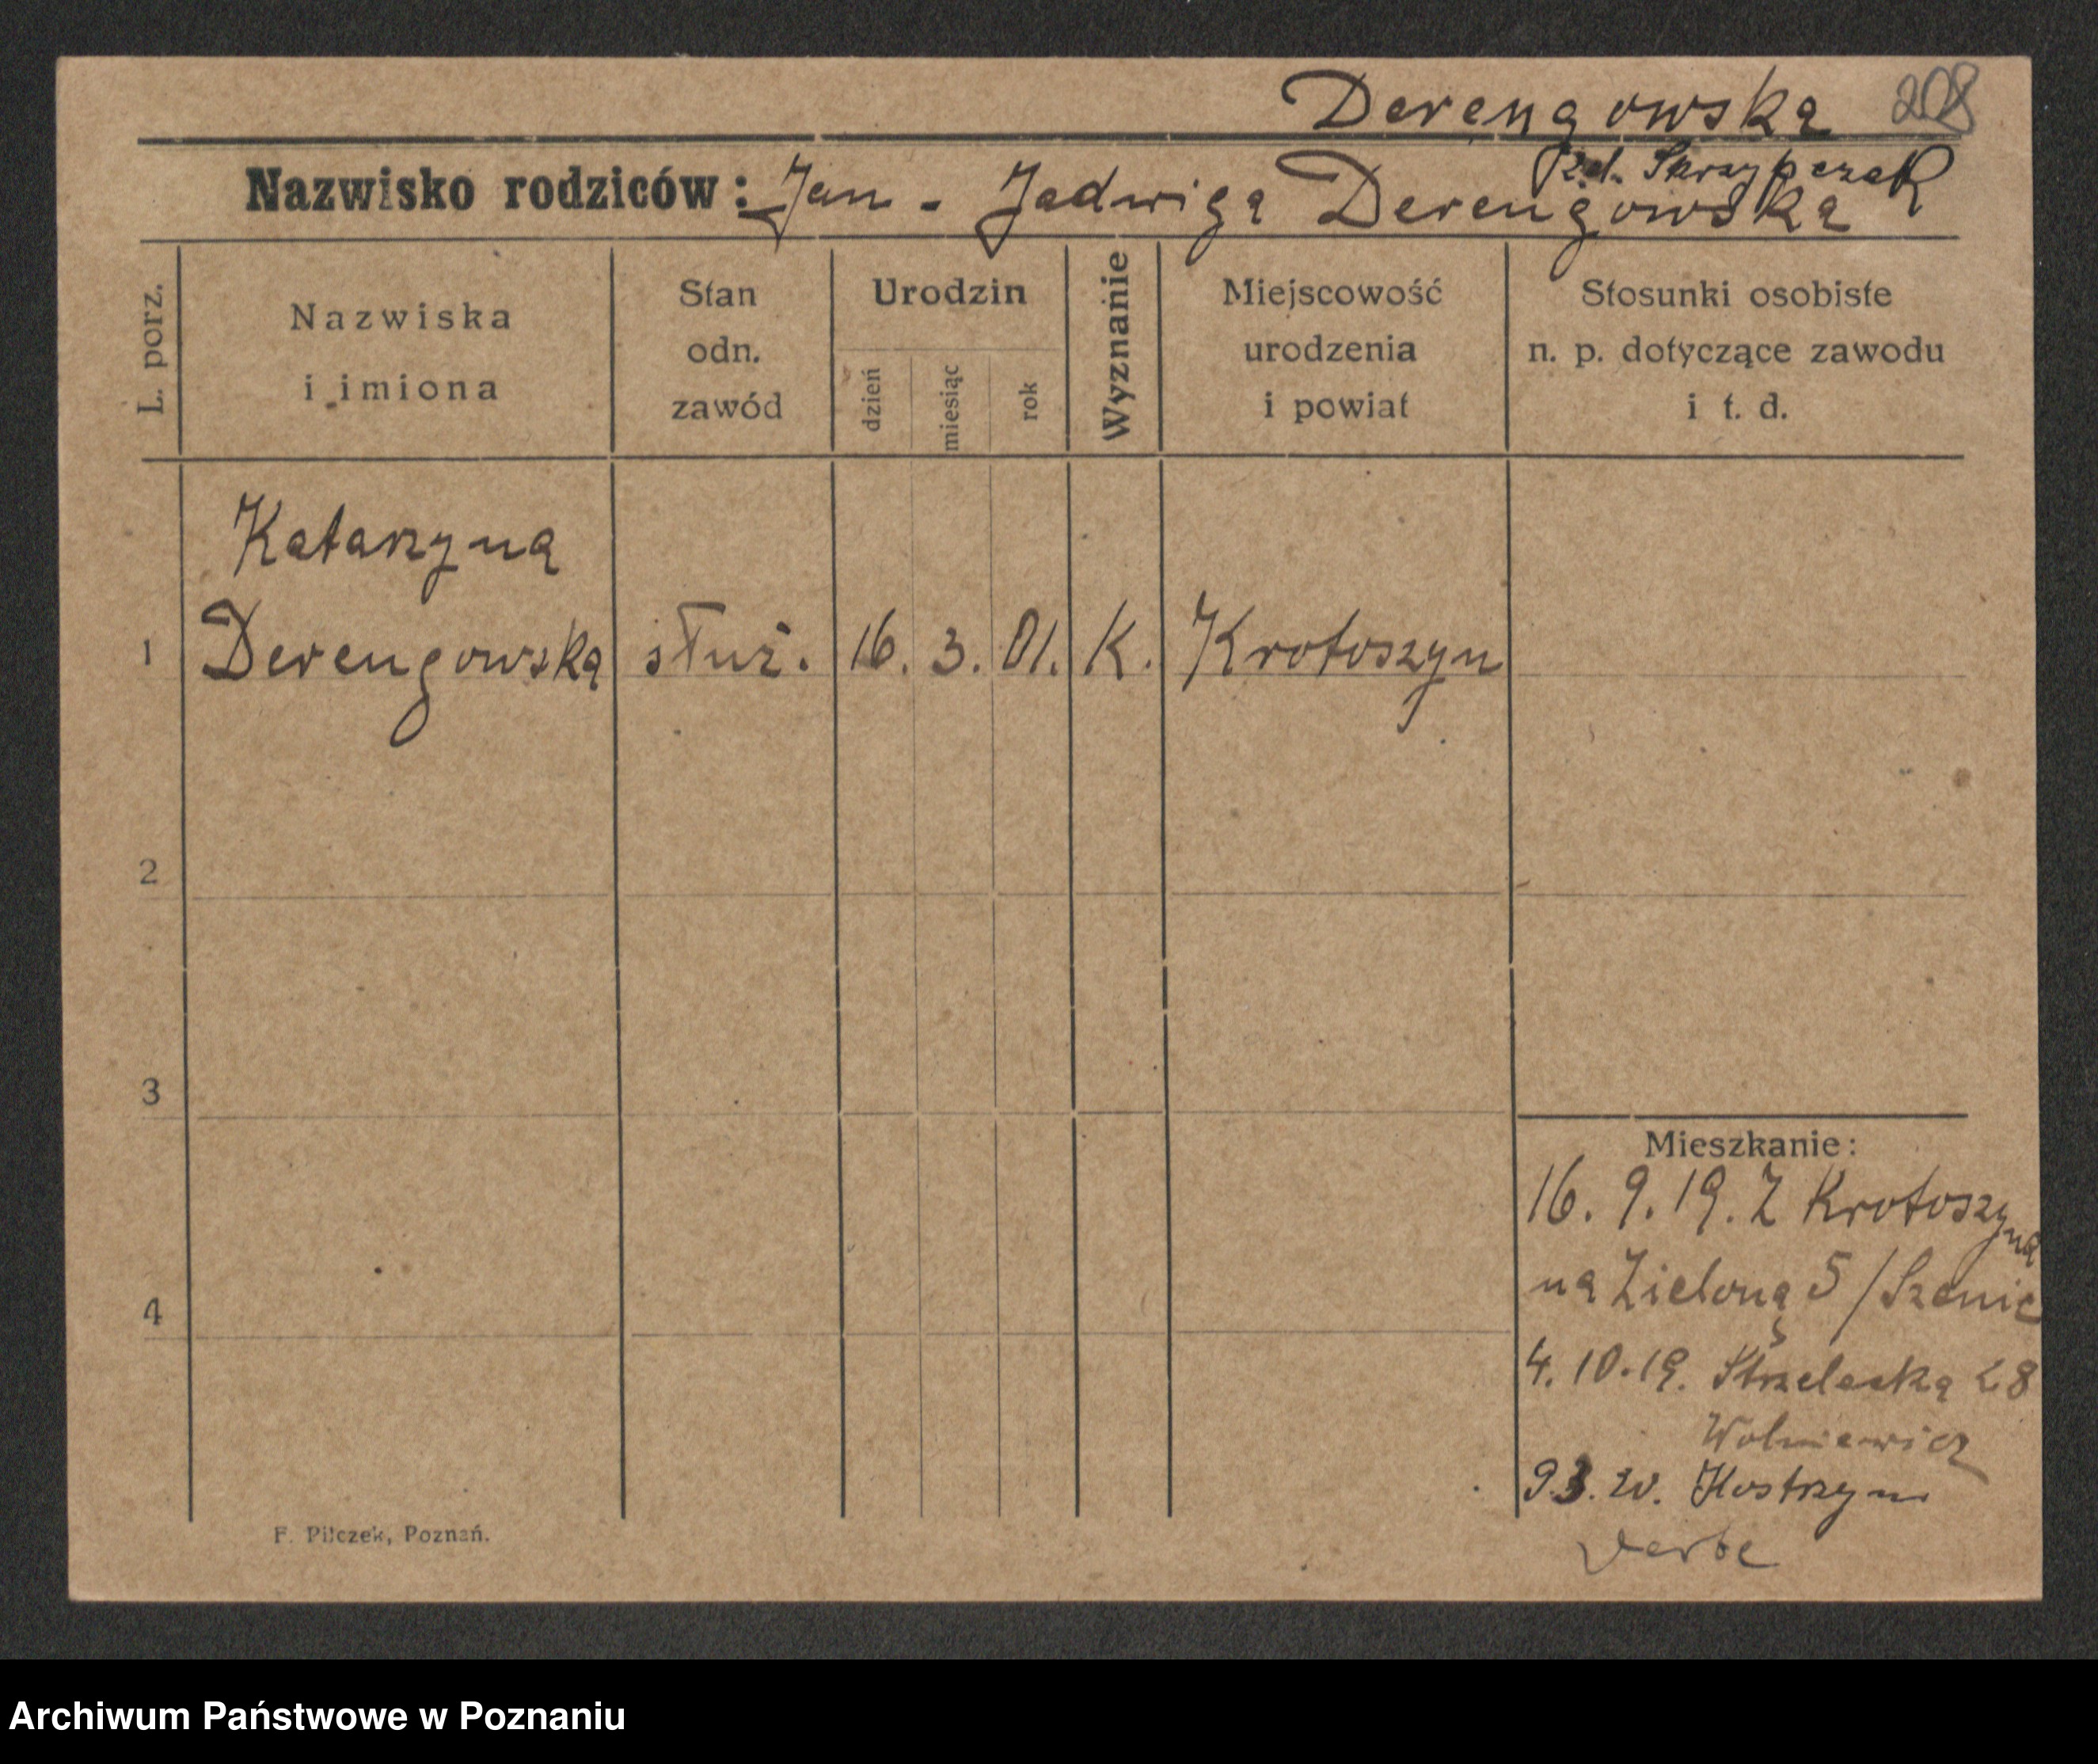 Derengowska 208
rzd. Skrzypczak
Nazwisko rodziców: Jan - Jadwiga Derengowska
L. porz.
Nazwiska i imiona
Stan odn. zawód
Urodzin
dzień
miesiąc
rok
Wyznanie
Miejscowość urodzenia i powiat
Stosunki osobiste n. p. dotyczące zawodu i t. d.
Katarzyna
1 Derengowska służ. 16. 3. 01. K. Krotoszyn
2
3
Mieszkanie:
16. 9. 19. Z Krotoszyna
na Zieloną 5 / Szenic
4
4. 10. 19. Strzelecka 28
Wolniewicz
9.3. 20. Kostrzyn
F. Pilczek, Poznań.
Archiwum Państwowe w Poznaniu